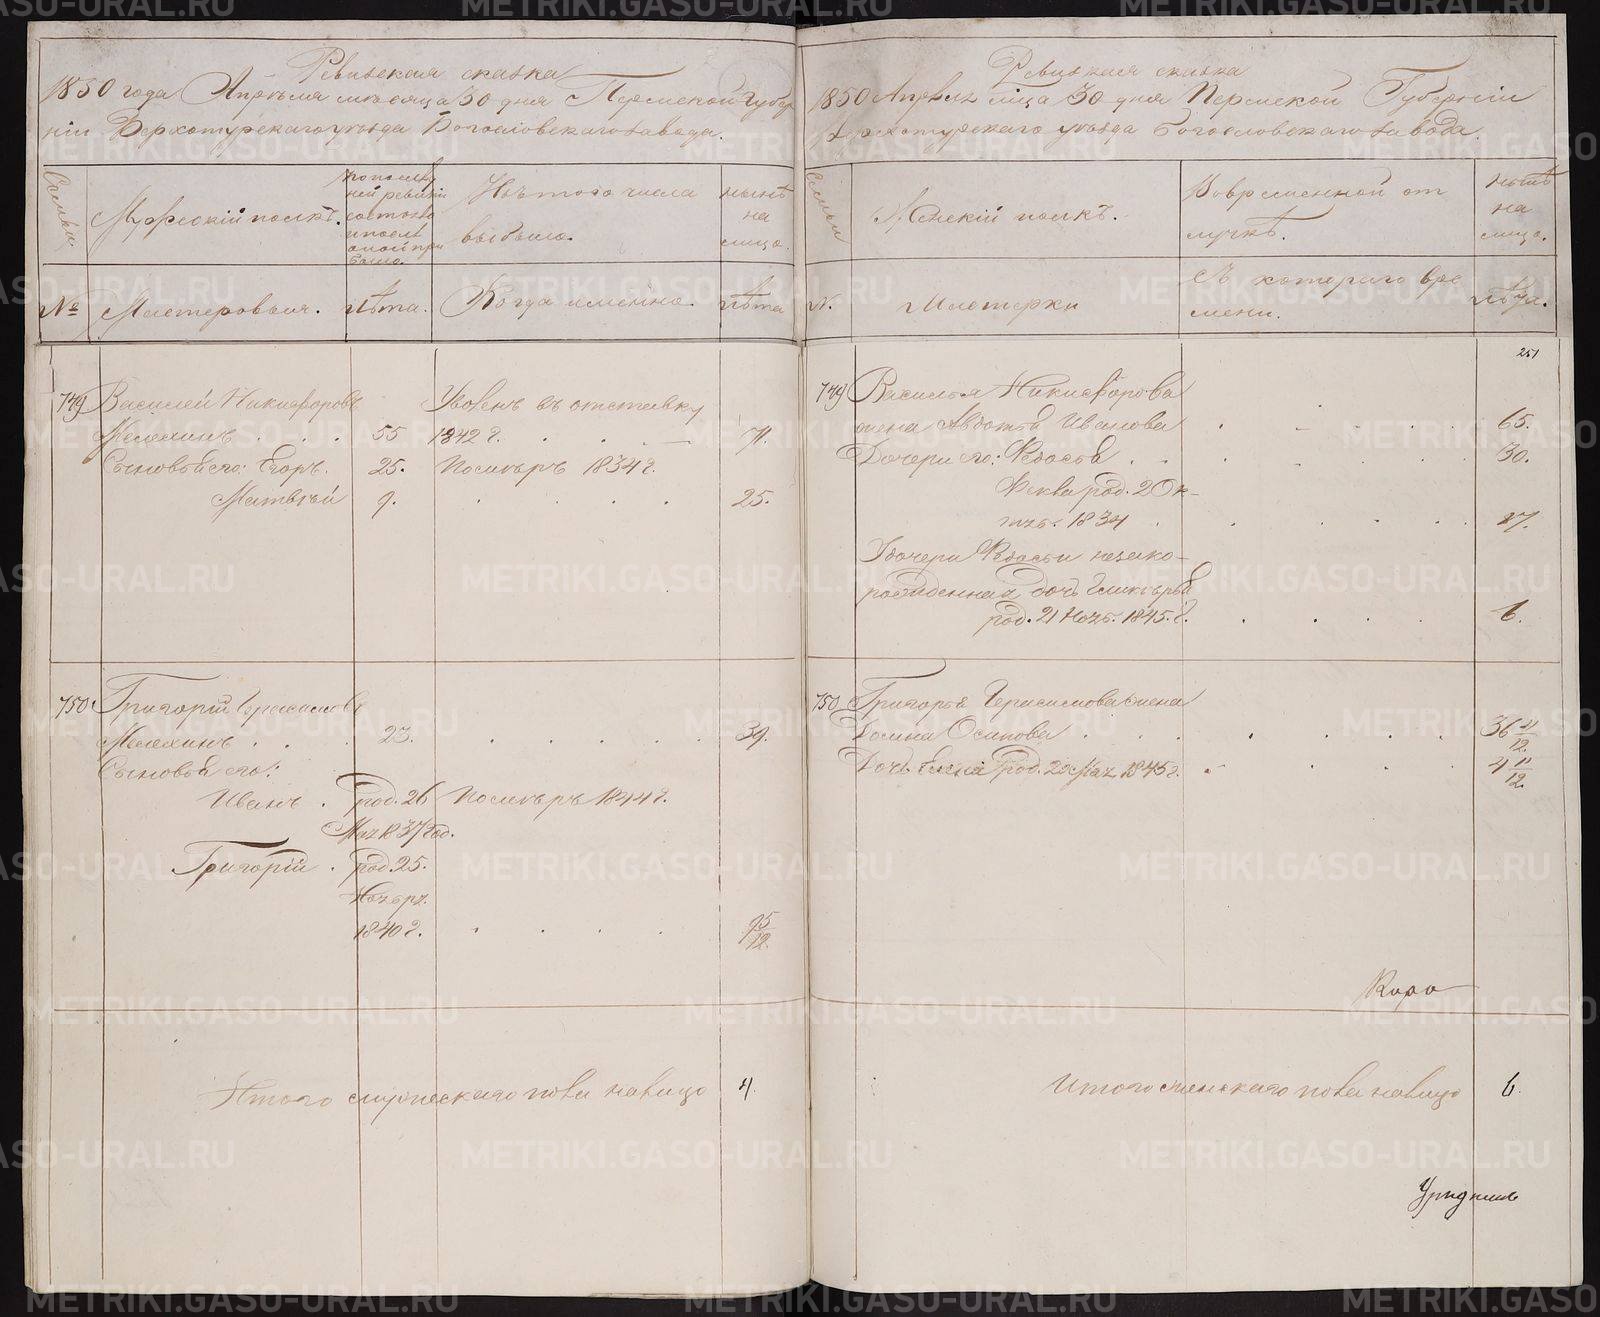 Ревизская сказка
1850 года Апреля месяца 30 дня Пермской Губер
нiи Верхотурскаго уезда Богословскаго завода.
Семьи
Мужескiй полъ.
По послед
ней ревизiи
состояло
и после
оной при
было.
Изъ того числа
выбыло.
ныне
на
лицо.
№
Мастеровыя.
Лѣта.
Когда именно.
Лѣта
749
Василей Никифоровъ
Уволенъ въ отставку
Мелехинъ . . .
55
1842 г.
71.
Сыновья его: Егоръ.
25.
Померъ 1834 г.
Матвей
9.
25.
750
Григорiй Герасимовъ
Мелехинъ . .
23.
39.
Сыновья его:
Иванъ .
род. 26
Померъ 1844 г.
Мая 1837 год.
Григорiй .
род. 25.
Ноября.
1840 г.
9 5/12.
Итого мужескаго пола налицо
4
Ревизская сказка
1850 Апреля м-ца 30 дня Пермской Губернiи
Верхотурскаго уезда Богословскаго завода.
Семьи
Женскiй полъ.
Во временной от
лучкѣ.
ныне
на
лицо.
№.
Мастерки
Съ котораго вре
мени.
Лѣта.
251
749
Василья Никифорова
жена Авдотья Иванова
65.
Дочери его: Федосья
30.
Фекла род. 20 к-
тяб. 1834
17.
У дочери Федосьи незако-
рожденная дочь Гликерья
род. 21 Нояб. 1845. г.
6.
750
Григорья Герасимова жена
Домна Осипова
36 11/12.
Дочь Елена род. 20 Мая 1845 г.
4 11/12.
Итого женскаго пола налицо
6.
METRIKI.GASO-URAL.RU